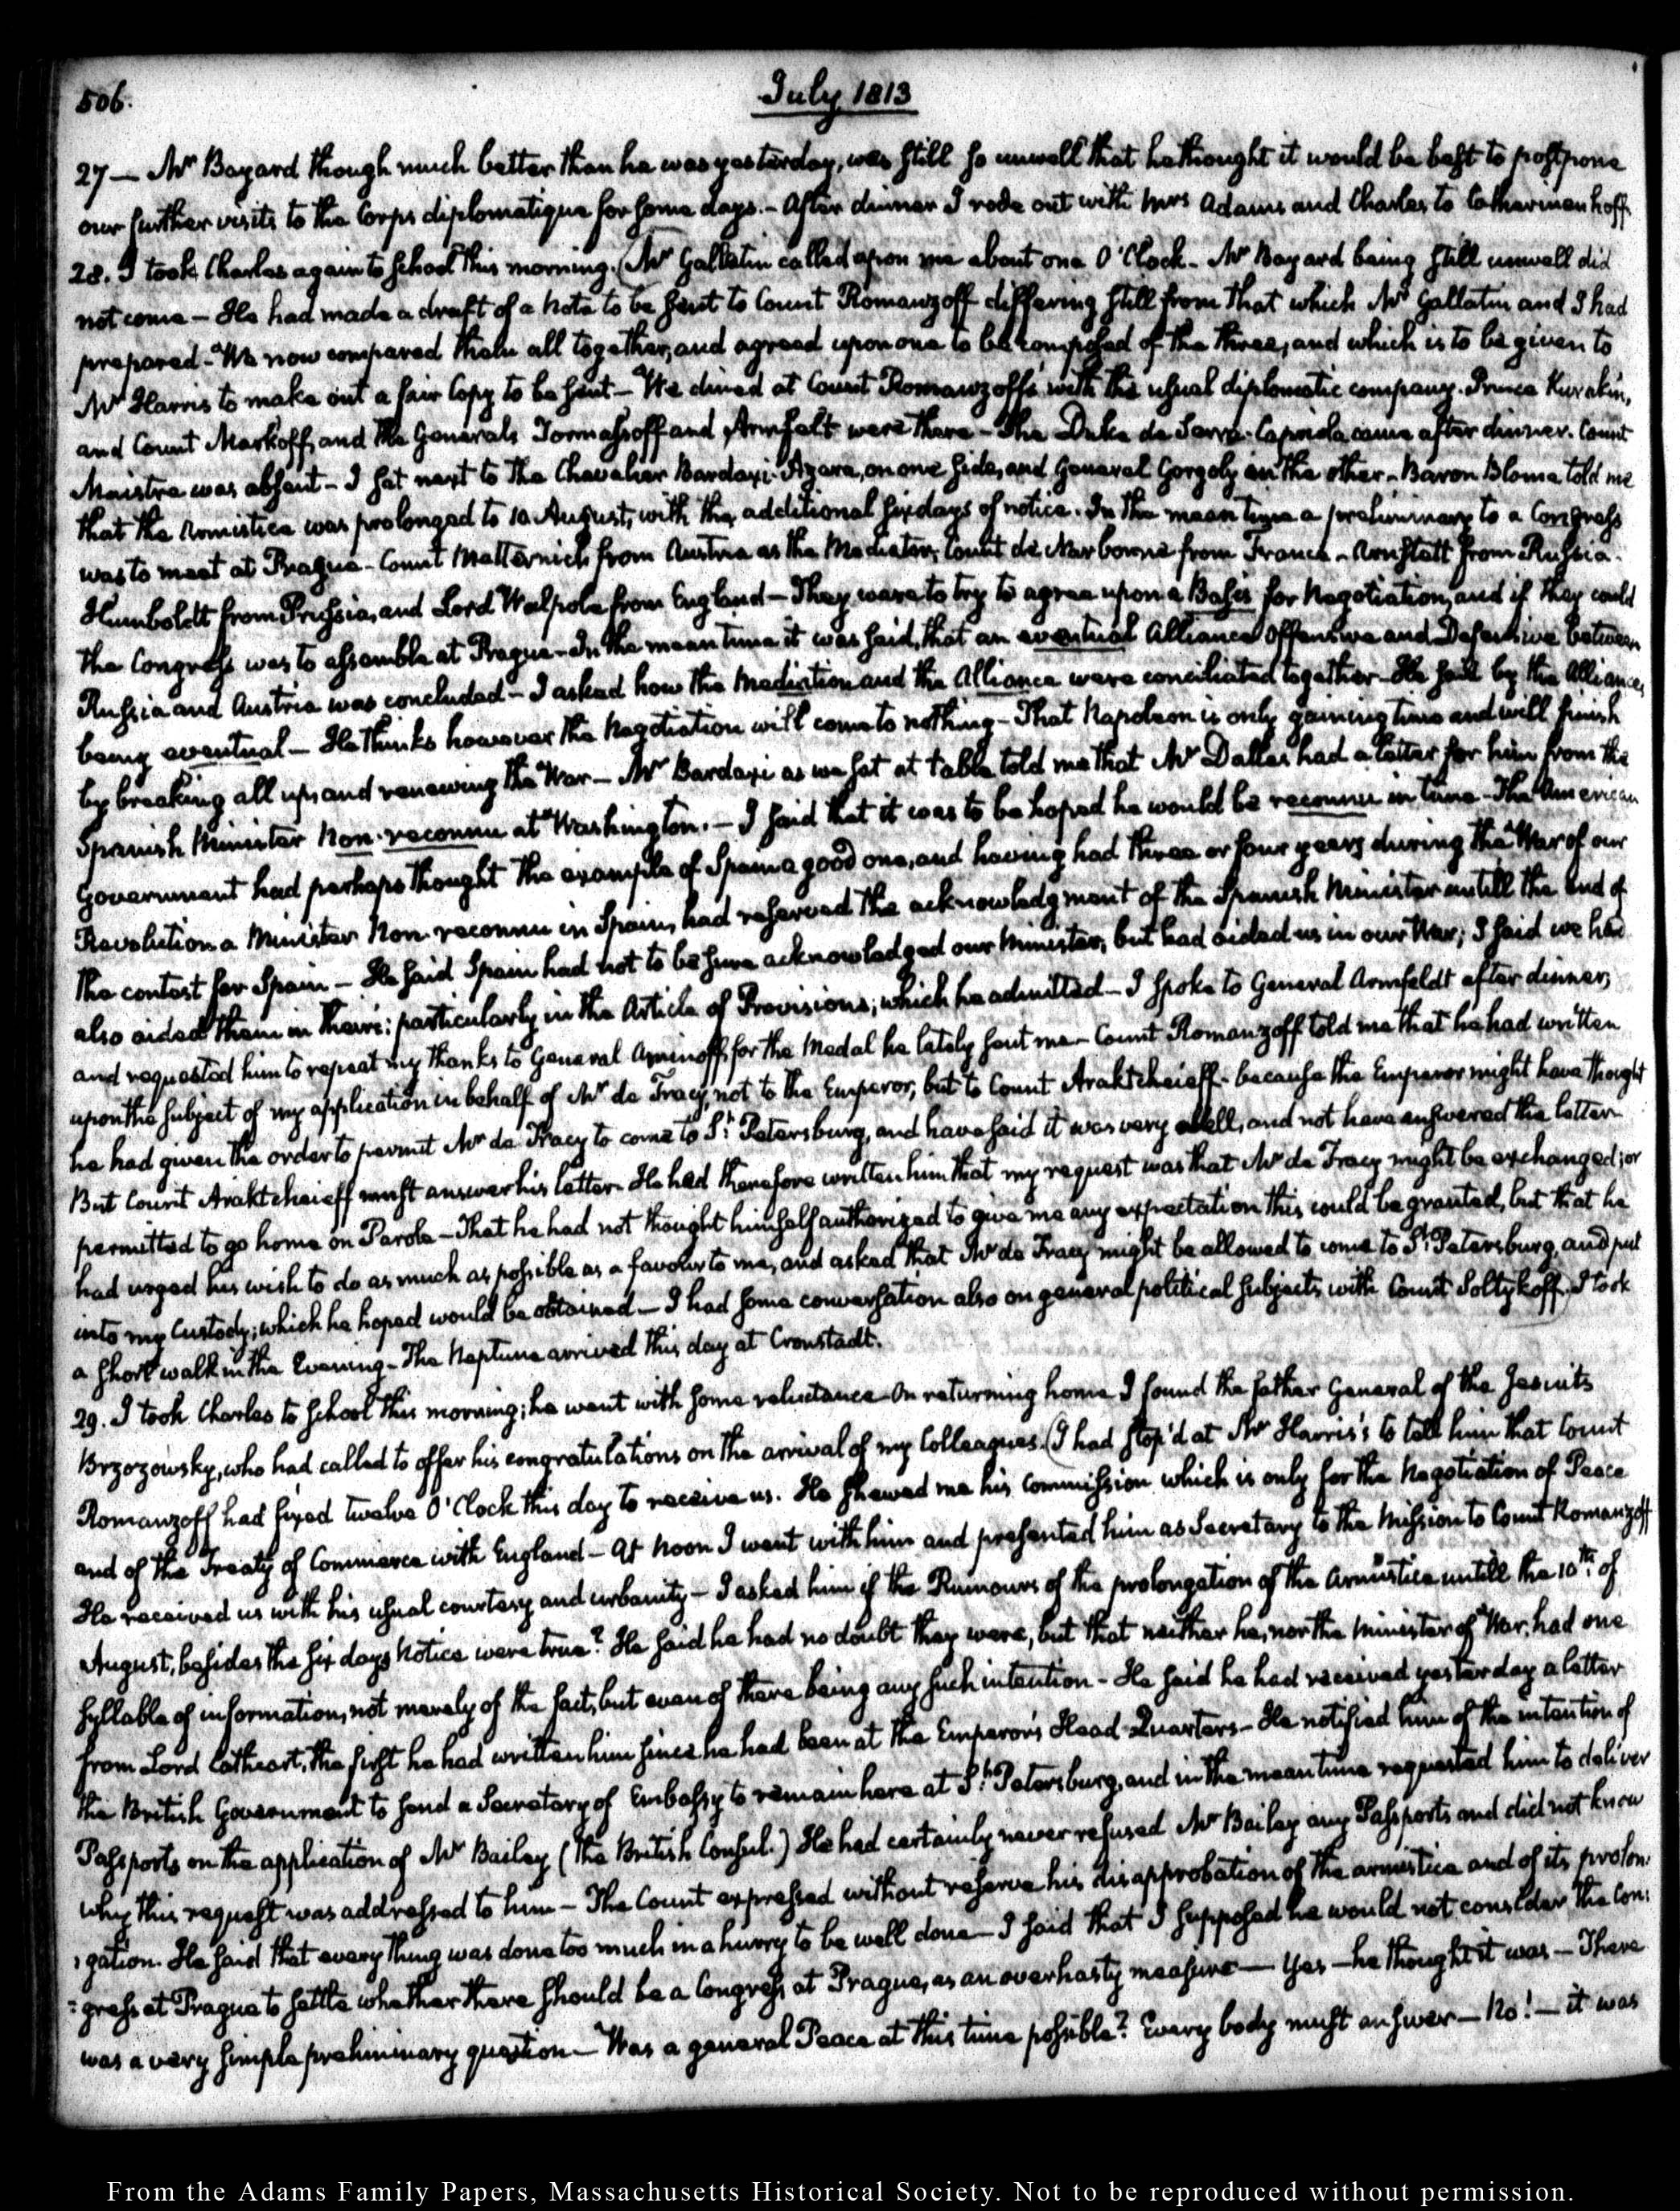 506.
July 1813
27 — Mr Bayard though much better than he was yesterday, was still so unwell that he thought it would be best to postpone
our further visits to the Corps diplomatique for some days. - After dinner I rode out with Mrs Adams and Charles to Catharinenhoff
28. I took Charles again to School this morning. (Mr Gallatin called upon me about one O'Clock - Mr Bayard being still unwell did
not come - He had made a draft of a Note to be sent to Count Romanzoff differing still from that which Mr Gallatin and I had
prepared - We now compared them all together, and agreed upon one to be composed of the three, and which is to be given to
Mr Harris to make out a fair Copy to be sent - We dined at Count Romanzoff's with the usual diplomatic company. Prince Kurakin,
and Count Markoff, and the Generals Tormassoff and Armfelt were there - The Duke de Serra-Capriola came after dinner. Count
Maistre was absent - I sat next to the Chevalier Bardaxi-Azara, on one side, and General Gorgoly on the other - Baron Blome told me
that the Armistice was prolonged to 10 August, with the additional six days of notice. In the mean time a preliminary to a Congress
was to meet at Prague - Count Metternich from Austria as the Mediator, Count de Narbonne from France - Anstett from Russia -
Humboldt from Prussia, and Lord Walpole from England - They were to try to agree upon a Basis for Negotiation, and if they could
the Congress was to assemble at Prague - In the mean time it was said, that an eventual Alliance Offensive and Defensive between
Russia and Austria was concluded - I asked how the Mediation and the Alliance were conciliated together - He said by the Alliance,
being eventual - He thinks however the Negotiation will come to nothing - That Napoleon is only gaining time and will finish
by breaking all up, and renewing the War - Mr Bardaxi as we sat at table told me that Mr Dallas had a letter for him from the
Spanish Minister Non-reconnu at Washington. - I said that it was to be hoped he would be reconnu in time - The American
Government had perhaps thought the example of Spain a good one, and having had three or four years during the War of our
Revolution a Minister Non-reconnu in Spain, had reserved the acknowledgment of the Spanish Minister untill the end of
the contest for Spain - He said Spain had not to be sure acknowledged our Minister, but had aided us in our War; I said we had
also aided them in theirs: particularly in the Article of Provisions; which he admitted - I spoke to General Armfeldt after dinner,
and requested him to repeat my thanks to General Aminoff, for the Medal he lately sent me - Count Romanzoff told me that he had written
upon the subject of my application in behalf of Mr de Tracy, not to the Emperor, but to Count Araktcheieff - because the Emperor might have thought
he had given the order to permit Mr de Tracy to come to St Petersburg, and have said it was very well, and not have answered the letter
But Count Araktcheieff must answer his letter - He had therefore written him that my request was that Mr de Tracy might be exchanged; or
permitted to go home on Parole - That he had not thought himself authorized to give me any expectation this could be granted, but that he
had urged his wish to do as much as possible as a favour to me, and asked that Mr de Tracy might be allowed to come to St Petersburg, and put
into my Custody; which he hoped would be obtained - I had some conversation also on general political subjects with Count Soltykoff. I took
a short walk in the Evening - The Neptune arrived this day at Cronstadt.
29. I took Charles to School this morning; he went with some reluctance - On returning home I found the father General of the Jesuits
Brzozowsky, who had called to offer his congratulations on the arrival of my Colleagues. (I had stop'd at Mr Harris's to tell him that Count
Romanzoff had fixed twelve O'Clock this day to receive us. He shewed me his Commission which is only for the Negotiation of Peace
and of the Treaty of Commerce with England - At Noon I went with him and presented him as Secretary to the Mission to Count Romanzoff
He received us with his usual courtesy and urbanity - I asked him if the Rumours of the prolongation of the Armistice untill the 10th of
August, besides the six days Notice were true? He said he had no doubt they were, but that neither he, nor the Minister of War, had one
syllable of information, not merely of the fact, but even of there being any such intention - He said he had received yesterday a letter
from Lord Cathcart, the first he had written him since he had been at the Emperor's Head-Quarters - He notified him of the intention of
the British Government to send a Secretary of Embassy to remain here at St Petersburg, and in the mean time requested him to deliver
Passports on the application of Mr Bailey (the British Consul.) He had certainly never refused Mr Bailey any Passports and did not know
why this request was addressed to him - The Count expressed without reserve his disapprobation of the armistice and of its prolon:
:gation. He said that every thing was done too much in a hurry to be well done - I said that I supposed he would not consider the Con:
:gress at Prague to settle whether there should be a Congress at Prague, as an overhasty measure — Yes — he thought it was — There
was a very simple preliminary question — Was a general Peace at this time possible? Every body must answer — No! — it was
From the Adams Family Papers, Massachusetts Historical Society. Not to be reproduced without permission.